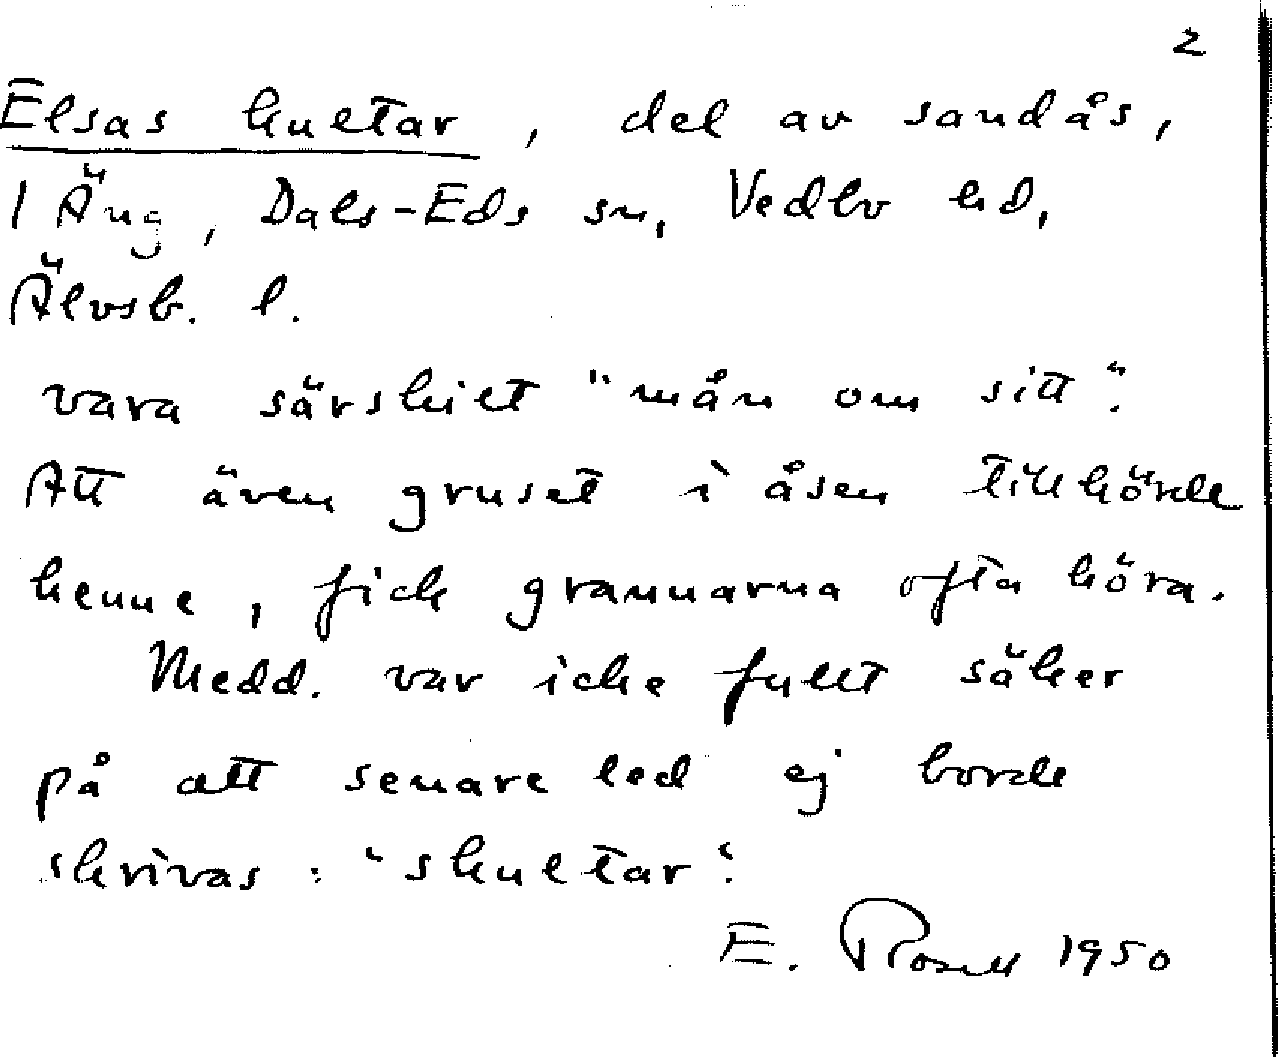 2
Elsas kultar, del av sandås,
1 Äng, Dals-Eds sn, Vedbo hd,
Älvsb. l.
vara särskilt "mån om sitt".
Att även gruset i åsen tillhörde
henne, fick grannarna ofta höra.
Medd. var icke fullt säker
på att senare led ej borde
skrivas: "skultar".
E. Rosell 1950